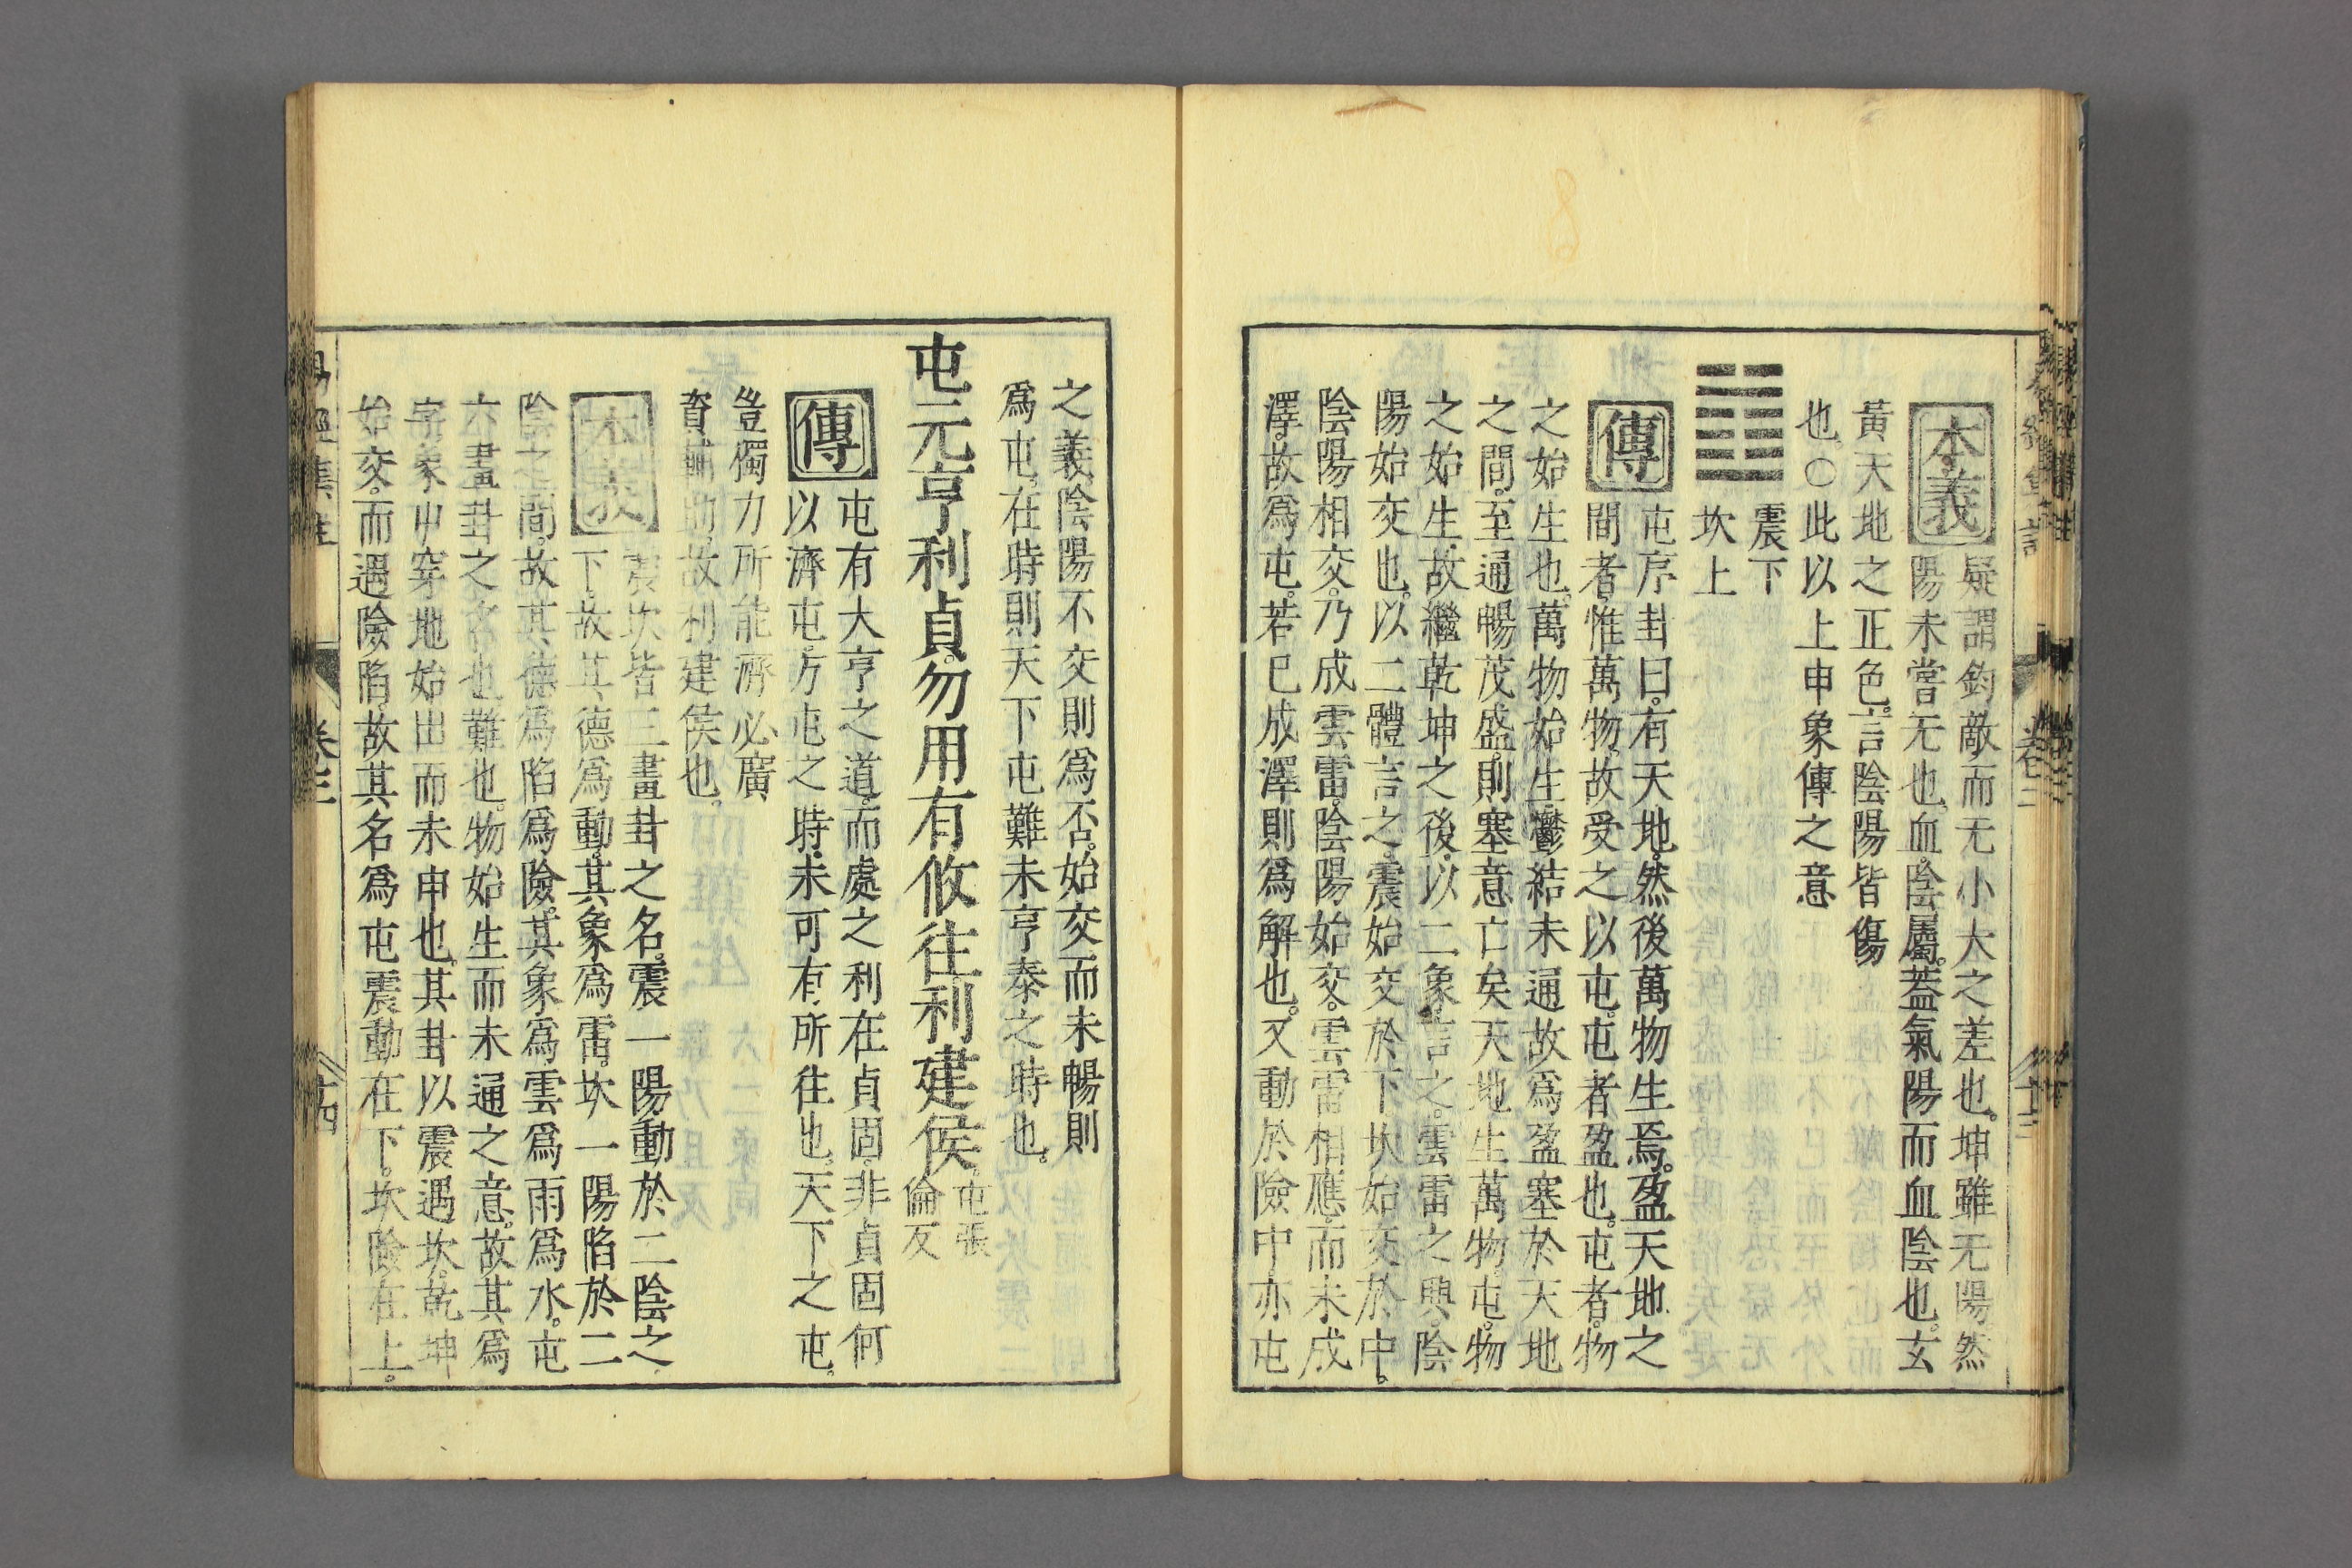 本義
疑謂鈞敵而无小大之差也。坤雖无陽。然
陽未嘗无也。血。陰屬。蓋氣陽而血陰也。玄
黃天地之正色。言陰陽皆傷
也。○此以上申象傳之意
震下
坎上
傳
屯序卦曰。有天地。然後萬物生焉。盈天地之
間者。惟萬物。故受之以屯。屯者盈也。屯者。物
之始生也。萬物始生。鬱結未通。故爲盈塞於天地
之間。至通暢茂盛。則塞意亡矣。天地生萬物。屯。物
之始生。故繼乾坤之後。以二象言之。雲雷之興。陰
陽始交也。以二體言之。震始交於下。坎始交於中。
陰陽相交。乃成雲雷。陰陽始交。雲雷相應。而未成
澤。故爲屯。若已成澤則爲解也。又動於險中。亦屯
之義。陰陽不交則爲否。始交而未暢則
爲屯。在時則天下屯難未亨泰之時也。
屯元亨利貞。勿用有攸往利建侯。屯張
倫反
傳
屯有大亨之道。而處之利在貞固。非貞固何
以濟屯。方屯之時。未可有所往也。天下之屯。
豈獨力所能濟必廣
資輔助。故利建侯也。
本義
震坎皆三畫卦之名。震一陽動於二陰之
下。故其德爲動。其象爲雷。坎一陽陷於二
陰之間。故其德爲陷爲險。其象爲雲爲雨爲水。屯
六畫卦之名也。難也。物始生而未通之意。故其爲
字象屮穿地始出而未申也。其卦以震遇坎。乾坤
始交。而遇險陷。故其名爲屯。震動在下。坎險在上。
易經集註
卷三
十四